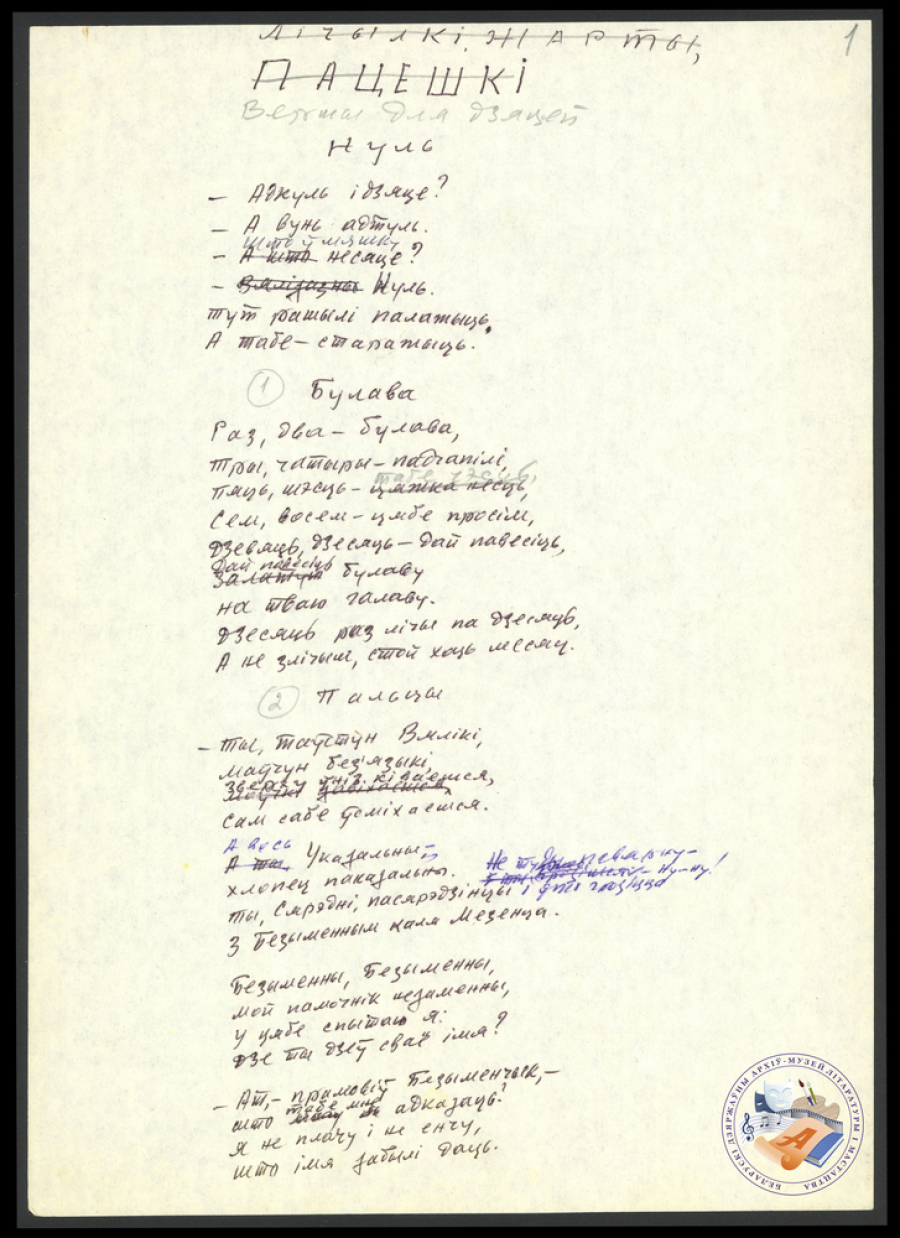 1
Лічылкі, жарты,
ПАЦЕШКІ
Вершы для дзяцей
Нуль
– Адкуль ідзяце?
– А вунь адтуль.
што ў мяшку
– А што несяце?
– Вялізазны Нуль.
Тут рашылі палажыць,
А табе – старажыць.
1 Булава
Раз, два – булава,
Тры, чатыры – падчапілі,
табе
Пяць, шэсць – цяжка несць,
Сем, восем – цябе просім,
Дзевяць, дзесяць – дай павесіць,
Дай павесіць
Залатую булаву
на тваю галаву.
Дзесяць раз лічы па дзесяць,
А не злічыш, стой хоць месяц.
2 Пальцы
– Ты, таўстун Вялікі,
маўчун без'языкі,
зверху ўніз ківаешся,
сам сабе ўсміхаешся.
А вось
А ты Указальны –
хлопец паказальны.
Не туды звярну –
ну-ну!
Ты, Сярэдні, пасярэдзінцы
З Безыменным каля Мезенца.
Безыменны, Безыменны,
мой памочнік незаменны,
у цябе спытаю я:
дзе ты дзеў сваё імя?
– Ат, – прамовіў Безыменчык, –
табе мне
што адказаць?
я не плачу і не енчу,
што імя забылі даць.
БЕЛАРУСКІ ДЗЯРЖАЎНЫ АРХІЎ-МУЗЕЙ ЛІТАРАТУРЫ І МАСТАЦТВА